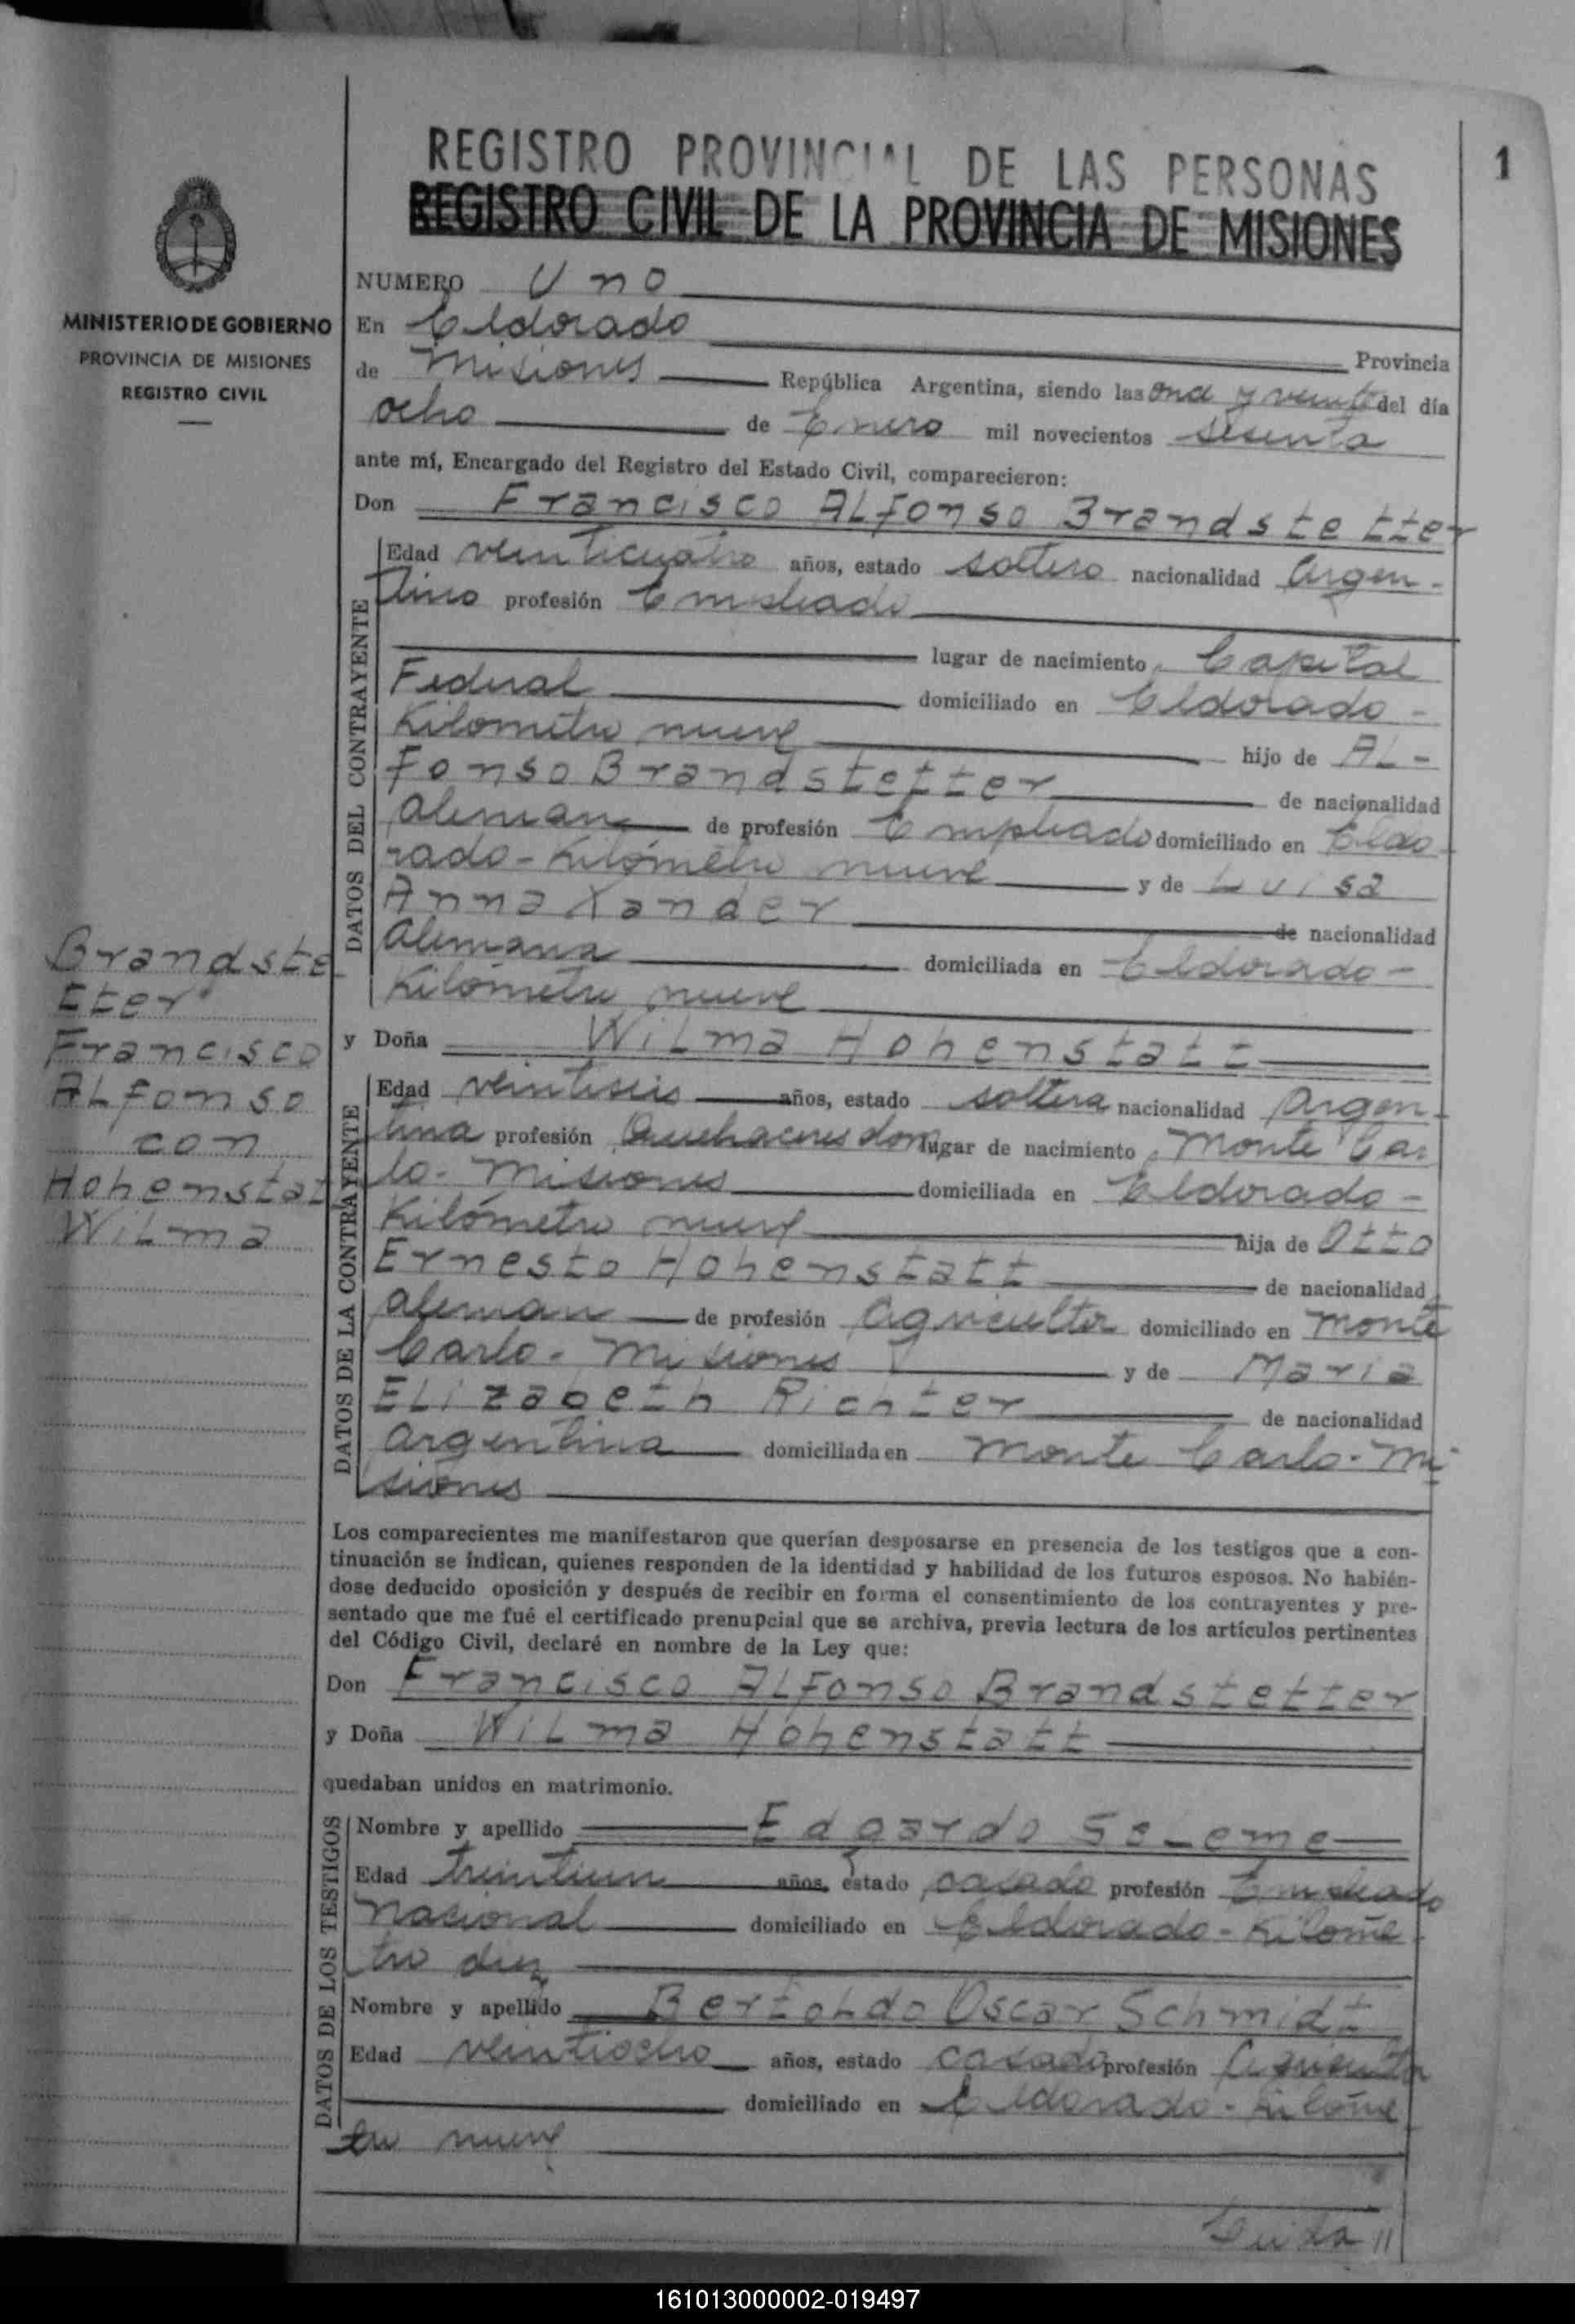 REGISTRO PROVINCIAL DE LAS PERSONAS
1
REGISTRO CIVIL DE LA PROVINCIA DE MISIONES
MINISTERIO DE GOBIERNO
PROVINCIA DE MISIONES
REGISTRO CIVIL
NUMERO Uno
En Eldorado Provincia
de Misiones República Argentina, siendo las once y veinte del día
ocho de Enero mil novecientos sesenta
ante mí, Encargado del Registro del Estado Civil, comparecieron:
Don Francisco ALfonso Brandstetter
DATOS DEL CONTRAYENTE
Edad veinticuatro años, estado soltero nacionalidad Argen-
tino profesión Empleado
lugar de nacimiento Capital
Federal domiciliado en Eldorado-
Kilómetro nueve hijo de AL-
Fonso Brandstetter de nacionalidad
Aleman de profesión Empleado domiciliado en Eldo-
rado-Kilómetro nueve y de Luisa
Anna Xander de nacionalidad
Alemana domiciliada en Eldorado-
Kilómetro nueve
Brandste
tter
Francisco
ALfonso
con
Hohenstat
Wilma
y Doña Wilma Hohenstatt
DATOS DE LA CONTRAYENTE
Edad veintiseis años, estado soltera nacionalidad Argen-
tina profesión Quehaceres dom lugar de nacimiento Monte Car
lo-Misiones domiciliada en Eldorado-
Kilómetro nueve hija de Otto
Ernesto Hohenstatt de nacionalidad
Aleman de profesión Agricultor domiciliado en Monte
Carlo-Misiones y de Maria
ELizabeth Richter de nacionalidad
Argentina domiciliada en Monte Carlo-Mi
siones
Los comparecientes me manifestaron que querían desposarse en presencia de los testigos que a con-
tinuación se indican, quienes responden de la identidad y habilidad de los futuros esposos. No habién-
dose deducido oposición y después de recibir en forma el consentimiento de los contrayentes y pre-
sentado que me fué el certificado prenupcial que se archiva, previa lectura de los artículos pertinentes
del Código Civil, declaré en nombre de la Ley que:
Don Francisco ALFonso Brandstetter
y Doña Wilma Hohenstatt
quedaban unidos en matrimonio.
DATOS DE LOS TESTIGOS
Nombre y apellido Edgardo SeLeme
Edad treintiun años, estado casado profesión Empleado
Nacional domiciliado en Eldorado-Kilóme
tro diez
Nombre y apellido Bertoldo Oscar Schmidt
Edad veintiocho años, estado casado profesión
domiciliado en Eldorado-Kilóme
tro nueve
161013000002-019497